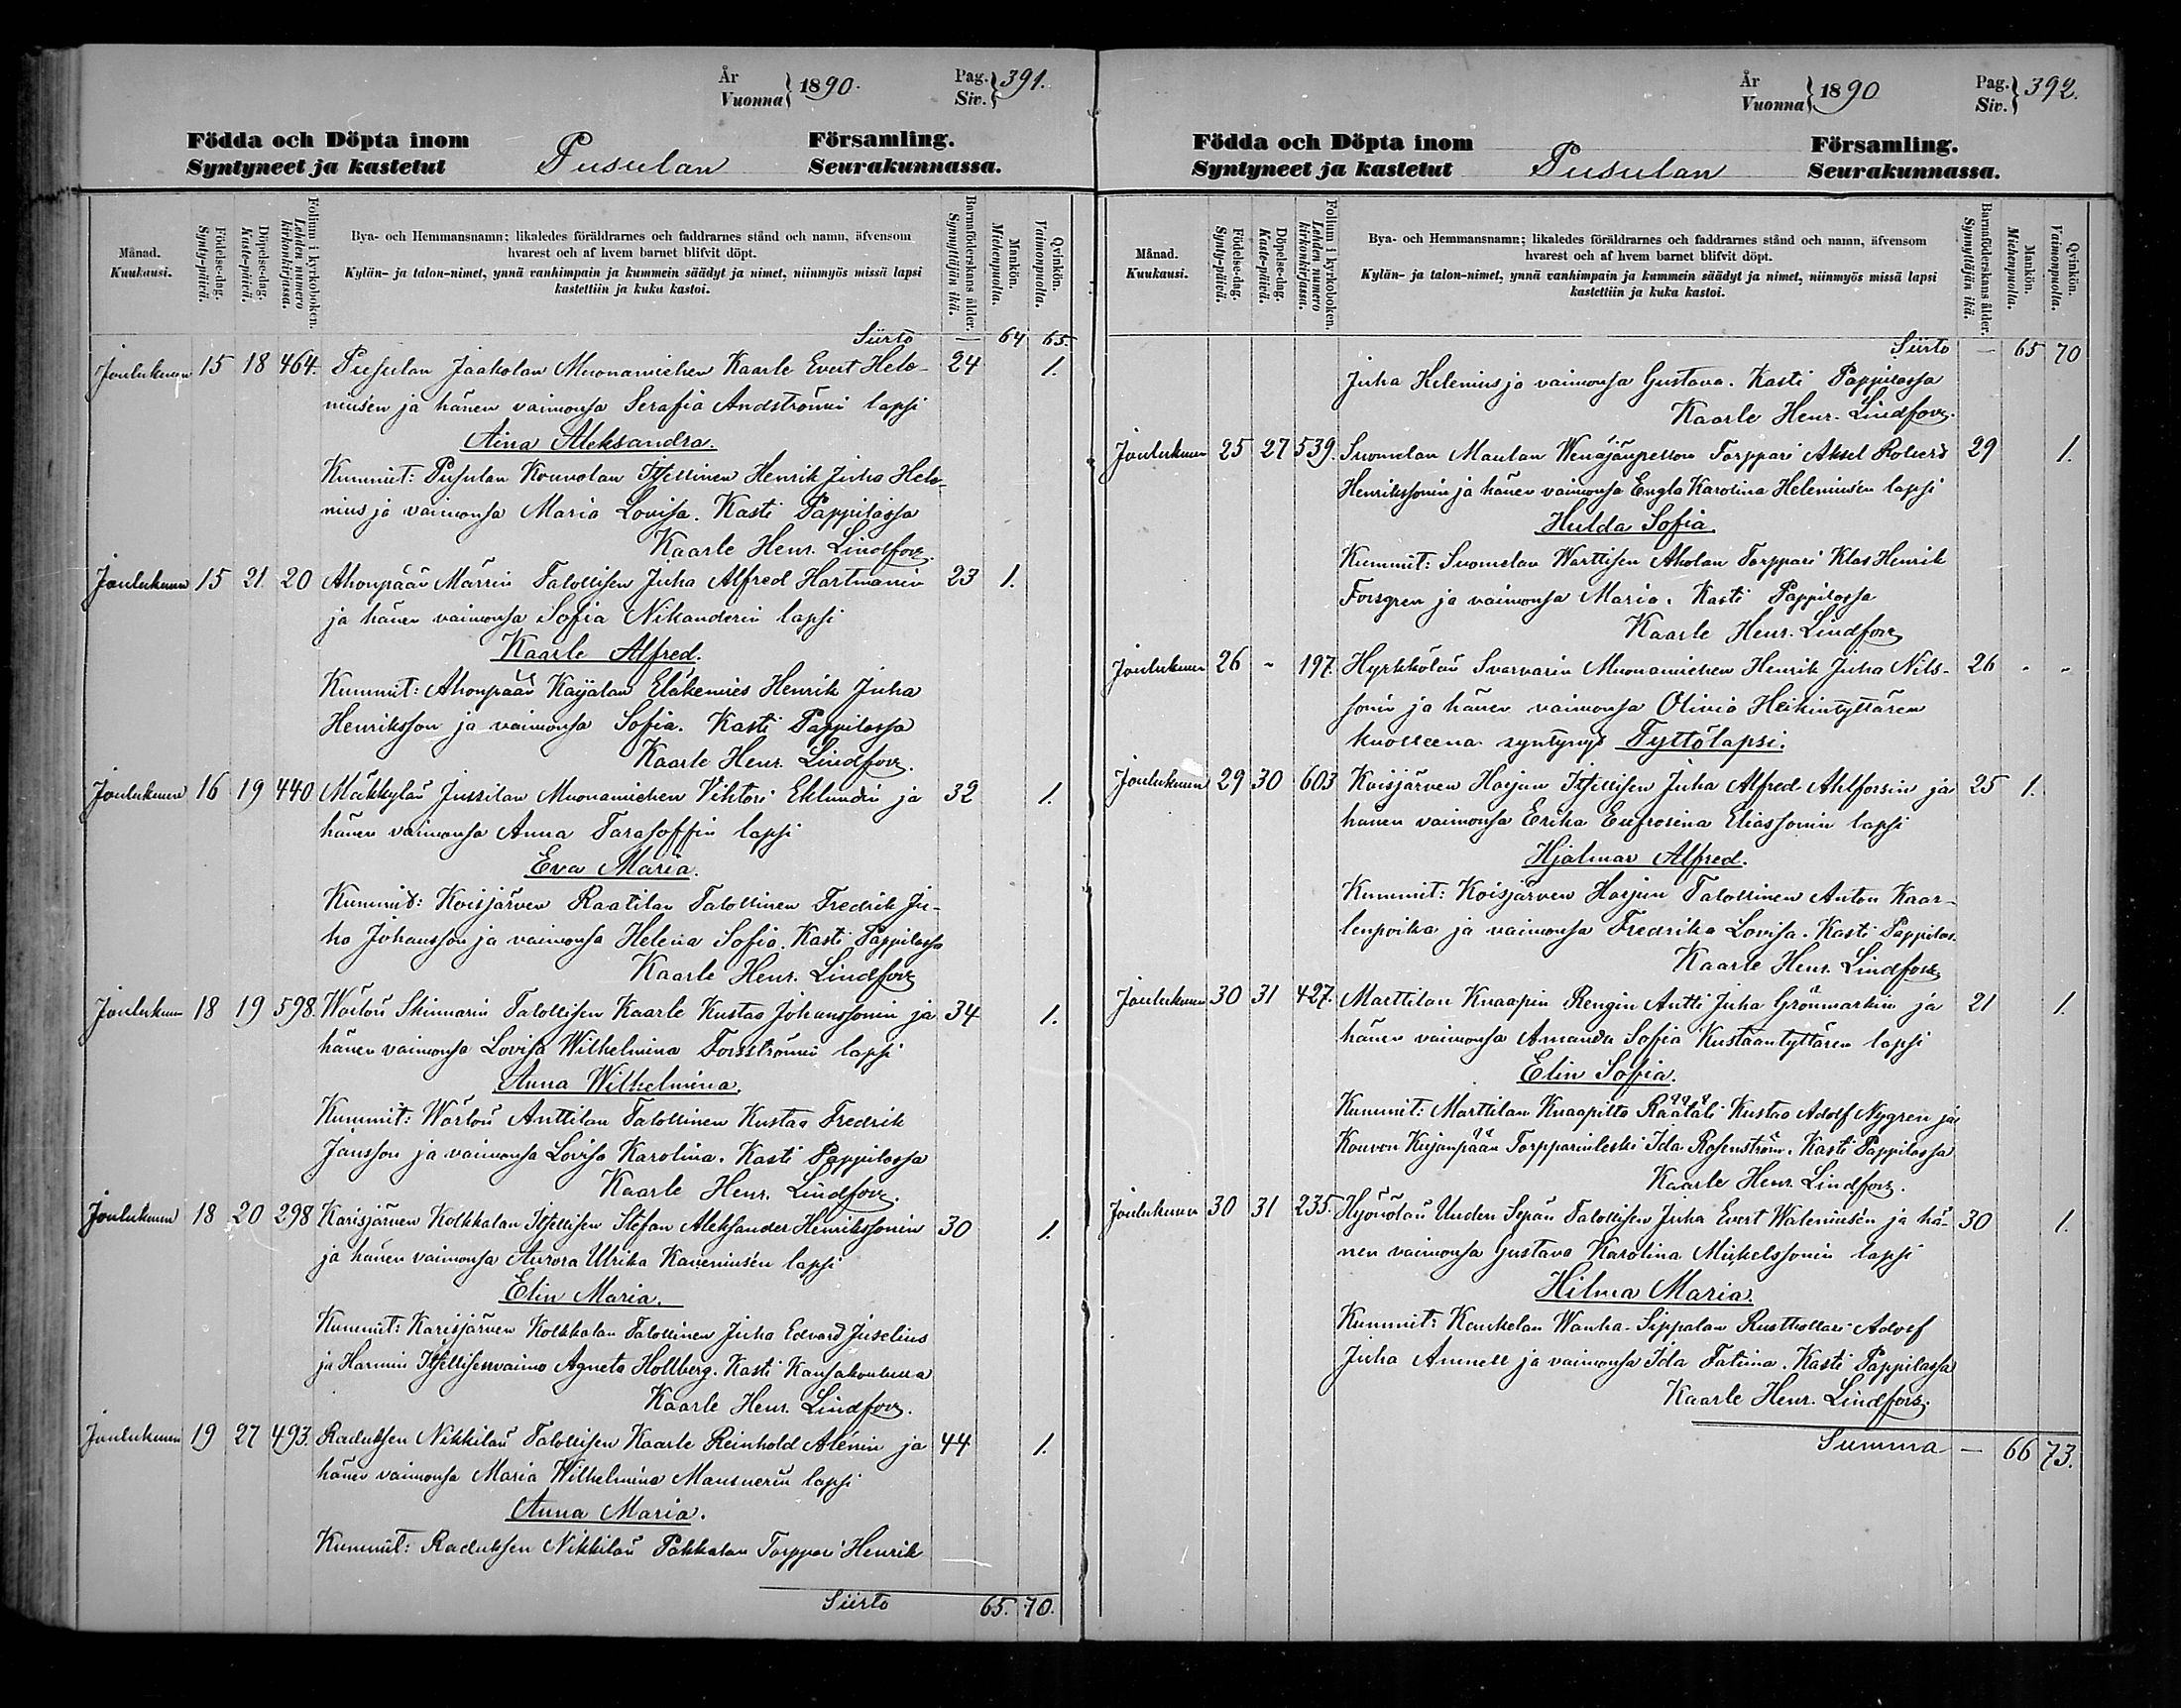 År
Vuonna } 1890.
Pag.
Siv. } 391.
Födda och Döpta inom
Syntyneet ja kastetut
Pusulan
Församling.
Seurakunnassa.
Månad.
Kuukausi.
Födelse-dag.
Synty-päivä.
Döpelse-dag.
Kaste-päivä.
Folium i kyrkoboken.
Lehden numero kirkonkirjassa.
Bya- och Hemmansnamn; likaledes föräldrarnes och faddrarnes stånd och namn, äfvensom
hvarest och af hvem barnet blifvit döpt.
Kylän- ja talon-nimet, ynnä vanhimpain ja kummein säädyt ja nimet, niinmyös missä lapsi
kastettiin ja kuka kastoi.
Barnaföderskans ålder.
Synnyttäjän ikä.
Mankön.
Miehenpuolia.
Qvinkön.
Vaimonpuolia.
Siirto — 64 65.
Joulukuun 15 18 464. Pusulan Jaakolan Muonamiehen Kaarle Evert Hele- 24 1.
niusen ja hänen vaimonsa Serafia Andströmin lapsi
Aina Aleksandra.
Kummit: Pusulan Kouvolan Itsellinen Henrik Juha Hele-
nius ja vaimonsa Maria Lovisa. Kasti Pappilassa
Kaarle Henr. Lindfors.
Joulukuun 15 21. 20 Ahonpään Märrin Talollisen Juha Alfred Hartmanin 23 1.
ja hänen vaimonsa Sofia Nikanderin lapsi
Kaarle Alfred.
Kummit: Ahonpään Käyälän Eläkemies Henrik Juha
Henriksson ja vaimonsa Sofia. Kasti Pappilassa
Kaarle Henr. Lindfors.
Joulukuun 16 19 440 Mäkkylän Jussilan Muonamiehen Vihtori Eklundin ja 32 1.
hänen vaimonsa Anna Tarasoffin lapsi
Eva Maria.
Kummit: Koisjärven Raatilan Talollinen Fredrik Ju-
ha Johansson ja vaimonsa Helena Sofia. Kasti Pappilassa
Kaarle Henr. Lindfors
Joulukuun 18 19 598. Wörlön Skinnarin Talollisen Kaarle Kustaa Johanssonin ja 34 1.
hänen vaimonsa Lovisa Wilhelmina Forsströmin lapsi
Anna Wilhelmina.
Kummit: Wörlön Anttilan Talollinen Kustaa Fredrik
Jansson ja vaimonsa Lovisa Karolina. Kasti Pappilassa
Kaarle Henr. Lindfors.
Joulukuun 18 20 298 Karisjärven Kolkkalan Itsellisen Stefan Aleksander Henrikssonin 30 1.
ja hänen vaimonsa Aurora Ulrika Kaveniusén lapsi
Elin Maria.
Kummit: Karisjärven Kolkkalan Talollinen Juha Edvard Juselius
ja Harmin Itsellisenvaimo Agneta Hollberg. Kasti Kansakoululla
Kaarle Henr. Lindfors.
Joulukuun 19 27 493. Raduksen Nikkilän Talollisen Kaarle Reinhold Alénin ja 44 1.
hänen vaimonsa Maria Wilhelmina Mausnerin lapsi
Anna Maria.
Kummit: Raduksen Nikkilän Pakkalan Torppari Henrik
Siirto 65. 70.
År
Vuonna } 1890
Pag.
Siv. } 392.
Födda och Döpta inom
Syntyneet ja kastetut
Pusulan
Församling.
Seurakunnassa.
Månad.
Kuukausi.
Födelse-dag.
Synty-päivä.
Döpelse-dag.
Kaste-päivä.
Folium i kyrkoboken.
Lehden numero kirkonkirjassa.
Bya- och Hemmansnamn; likaledes föräldrarnes och faddrarnes stånd och namn, äfvensom
hvarest och af hvem barnet blifvit döpt.
Kylän- ja talon-nimet, ynnä vanhimpain ja kummein säädyt ja nimet, niinmyös missä lapsi
kastettiin ja kuka kastoi.
Barnaföderskans ålder.
Synnyttäjän ikä.
Mankön.
Miehenpuolia.
Qvinkön.
Vaimonpuolia.
Siirto — 65 70
Juha Helenius ja vaimonsa Gustava. Kasti Pappilassa
Kaarle Henr. Lindfors.
Joulukuun 25 27 539. Suomelan Maulan Wenäjänpellon Torppari Aksel Roberd 29 1.
Henrikssonin ja hänen vaimonsa Engla Karolina Heleniusén lapsi
Hulda Sofia.
Kummit: Suomelan Warttisen Aholan Torppari Klas Henrik
Forsgren ja vaimonsa Maria. Kasti Pappilassa
Kaarle Henr. Lindfors
Joulukuun 26 - 197. Hyrkkölän Svarvarin Muonamiehen Henrik Juha Nils- 26 - -
sonin ja hänen vaimonsa Olivia Heikintyttären
kuolleena syntynyt Tyttölapsi.
Joulukuun 29 30 603 Koisjärven Harjun Itsellisen Juha Alfred Ahlforsin ja 25 1.
hänen vaimonsa Erika Eufrosina Eliassonin lapsi
Hjalmar Alfred.
Kummit: Koisjärven Harjun Talollinen Anton Kaar-
lenpoika ja vaimonsa Fredrika Lovisa. Kasti Pappilas.
Kaarle Henr. Lindfors
Joulukuun 30 31 427. Marttilan Knaapin Rengin Antti Juha Grönmarkin ja 21 1.
hänen vaimonsa Amanda Sofia Kustaantyttären lapsi
Elin Sofia.
Kummit: Marttilan Knaapilta Räätäli Kustaa Adolf Nygren ja
Kouvon Kujanpään Torpparinleski Ida Rosenström. Kasti Pappilassa
Kaarle Henr. Lindfors.
Joulukuun 30 31 235. Hyönölän Uuden Sepän Talollisen Juha Evert Waleniusén ja hä- 30 1.
nen vaimonsa Gustava Karolina Mickelssonin lapsi
Hilma Maria.
Kummit: Kaukelan Wanha-Sippalan Rusthollari Adolf
Juha Ammell ja vaimonsa Ida Fatima. Kasti Pappilassa
Kaarle Henr. Lindfors.
Summa — 66 73.